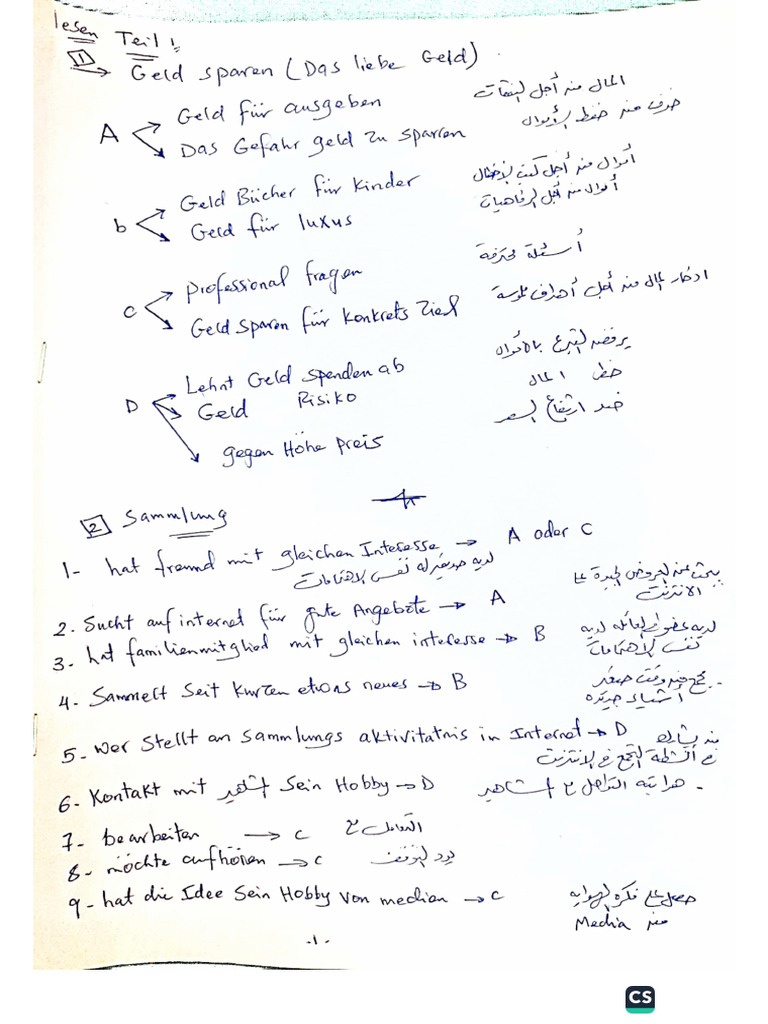 lesen Teil 1,
1 → Geld sparen (Das liebe Geld).
A Geld für ausgeben المال من أجل النفقات
Das Gefahr geld zu sparren خوف من حفظ الأموال
b Geld Bücher für kinder أموال من أجل كتب الأطفال
Geld für luxus أموال من أجل الرفاهيات
C professional fragen أسئلة محترفة
Geld sparen für konkrets Ziel ادخار المال من أجل أهداف ملموسة
D Lehnt Geld spenden ab يرفض التبرع بالأموال
Geld Risiko خطر المال
gegen Höhe preis ضد ارتفاع السعر
2 Sammlung
1- hat freund mit gleichen Interesse → A oder C
لديه صديق له نفس الاهتمامات
2. Sucht auf internet für gute Angebote → A يبحث عن العروض الجيدة على
الانترنت
3. hat familienmitglied mit gleichen interesse → B لديه عضو في العائلة لديه
نفس الاهتمامات
4- Sammelt Seit kurzen etwas neues → B يجمع منذ وقت صغير
أشياء جديدة
5- wer stellt an sammlungs aktivitatnis in Internet → D من يشارك
في أنشطة التجمع في الانترنت
6- Kontakt mit المشاهير Sein Hobby → D هوايته التواصل مع المشاهير.
7- bearbeiten → c التعامل مع
8- möchte aufhören → c يريد التوقف
9- hat die Idee Sein Hobby von median → c حصل على فكرة الهواية
من Media
-1-
CS